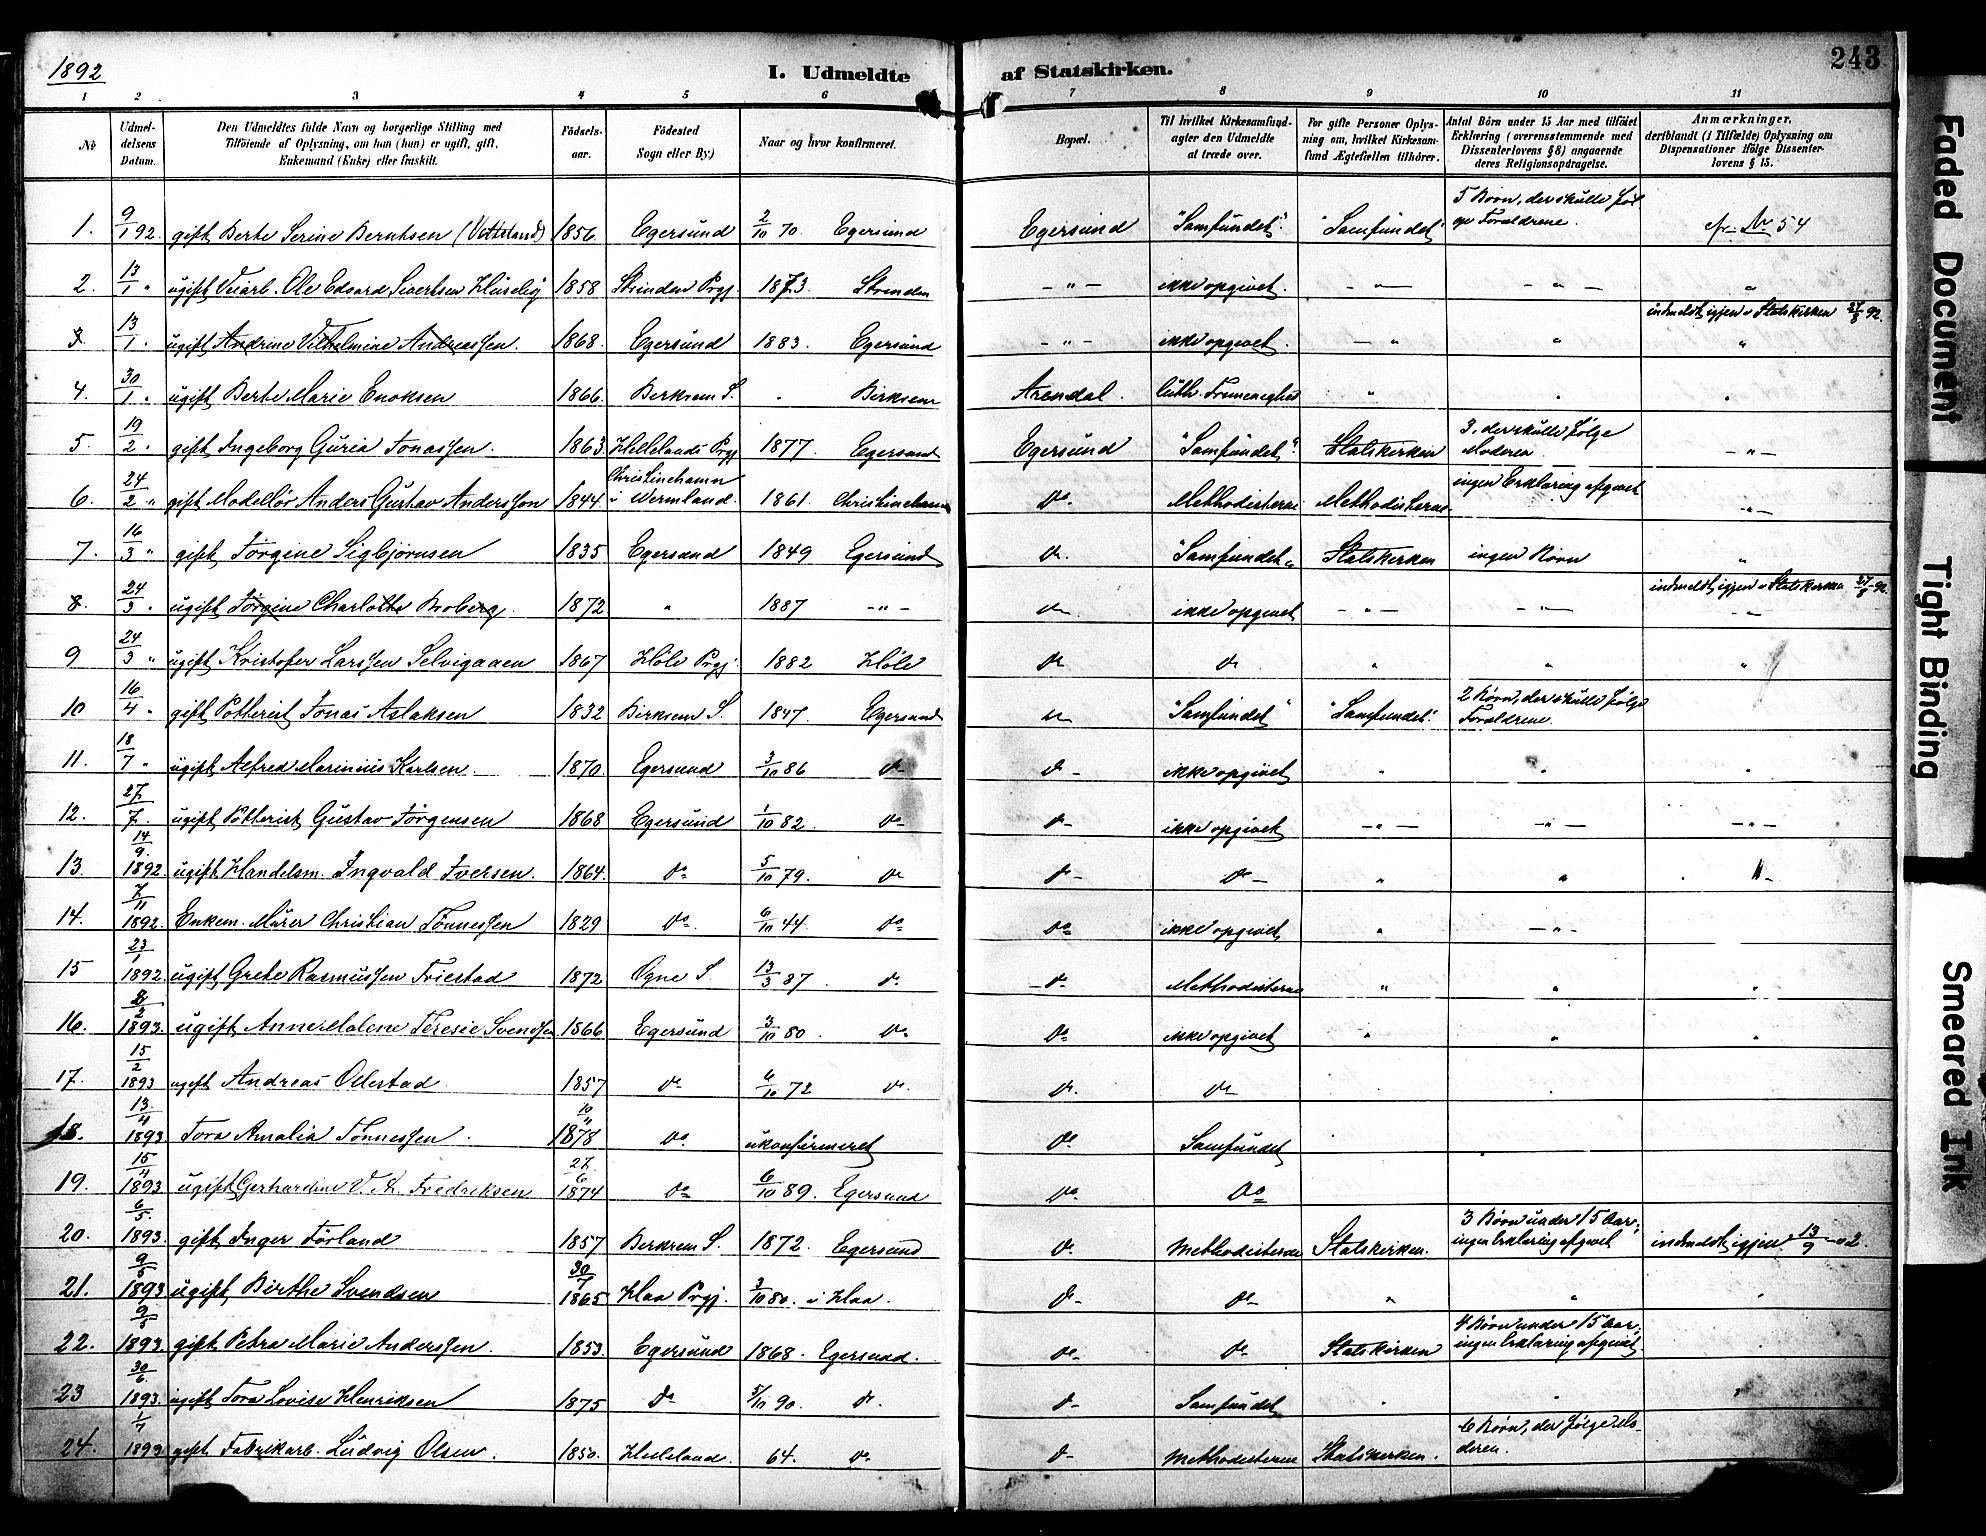 1892
I. Udmeldte af Statskirken.
243
1 2 3 4 5 6 7 8 9 10 11
No
Udmeldelsens Datum.
Den Udmeldtes fulde Navn og borgerlige Stilling med
Tilföiende af Oplysning, om han (hun) er ugift, gift,
Enkemand (Enke) eller fraskilt.
Födselsaar.
Födested
Sogn eller By.)
Naar og hvor konfirmeret.
Bopæl.
Til hvilket Kirkesamfund
agter den Udmeldte
at træde over.
For gifte Personer Oplysning om, hvilket Kirkesamfund Ægtefællen tilhörer.
Antal Börn under 15 Aar med tilföiet
Erklæring (overensstemmende med
Dissenterlovens § 8) angaaende
deres Religionsopdragelse.
Anmærkninger,
deriblandt (i Tilfælde) Oplysning om
Dispensationer ifölge Dissenterlovens § 15.
1. 9/1 92. gift Berte Serine Berntsen 1856 Egersund 2/10 70 Egersund Egersund "Samfundet". "Samfundet" 5 Børn, der skulle følge Forældrene. cfr. Nr 54
2. 13/1 " ugift Veiarb. Ole Edvard Sivertsen 1858 Strinden Prgj. 1873 Strinden - " - ikke opgivet. - " - - " - "
3. 13/1 " ugift Andrine Vilhelmine Andreassen. 1868. Egersund 1883. Egersund - " - ikke opgivet. - " " indmeldt igjen i Statskirken 27/8 92.
4. 30/1 " ugift Berte Marie Enoksen 1866. Birkrem S. " Birkrem Arendal. luth. Frimenighed " " "
5. 19/2 " gift Ingeborg Guria Jonassen. 1863. Hellelands Prgj 1877. Egersund Egersund "Samfundet" Statskirken 3, der skulle følge Moderen - " -
6. 24/2 " gift Modellør Anders Gustav Andersson 1844 Christinehamn i Wermland. 1861. Christinehamn Do. Methodisterne Methodisterne ingen Erklæring afgivet - " -
7. 16/3 " gift Jørgine Sigbjørnsen 1835 Egersund 1849 Egersund do. "Samfundet" Statskirken ingen Børn "
8. 24/3 " ugift Jørgine Charlotte Broberg. 1872 " 1887 - " - do ikke opgivet - " - - " - indmeldt igjen i Statskirken 27/8 92.
9 24/3 " ugift Kristofer Larssen Selvigaaen 1867 Høle Prgj. 1882 Høle do do " " "
10 16/4 " gift Potterist Jonas Aslaksen 1832 Birkrem S. 1847. Egersund do "Samfundet" "Samfundet". 2 Børn, der skulle følge Forældrene.
11. 18/7 " ugift Alfred Marinius Karlsen 1870. Egersund 3/10 86 do do ikke opgivet " " "
12. 27/7. ugift Potterist Gustav Jørgensen 1868 Egersund 1/10 82. do do ikke opgivet - " - - " - - " -
13. 14/9. 1892. ugift Handelsm. Ingvald Iversen. 1864. do 5/10 79. do do do " "
14. 7/11 1892. Enkem. Murer Christian Tønnessen 1829 do 6/10 44. do do ikke opgivet " - " -
15 23/1 1892. ugift Grete Rasmussen Friestad 1872 Ogne S. 13/3 87. do do Methodisterne " " "
16. 8/2 1893. ugift Anne Malene Teresie Svendsen 1866 Egersund 3/10 80. do do ikke opgivet " " "
17. 15/2 1893 ugift Andreas Ollestad. 1857 do 6/10 72 do do. do
18. 13/4 1893 Tora Amalia Tønnessen. 10/11 1878 do ukonfirmeret do Samfundet
19. 15/4 1893 ugift Gerhardine V. A. Fredriksen 27/6 1874 do 6/10 89. Egersund do Do
20. 6/5. 1893. gift Inger Førland 1857 Birkrem S. 1872. Egersund do Methodisterne Statskirken. 3 Børn under 15 Aar; ingen Erklæring afgivet indmeldt igjen 13/9 02.
21. 9/5 1893 ugift Birthe Svendsen 30/7 1865 Haa Prgj. 3/10 80. i Haa. do do " " "
22. 9/5 1893. gift Petra Marie Anderssen. 1853. Egersund 1868. Egersund. do do Statskirken 4 Børn under 15 Aar, ingen Erklæring afgivet
23 30/6. 1893. ugift Tora Lovise Henriksen 1875 do 5/10 90. do. do Samfundet " " "
24. 1/7 1893 gift Fabrikarb. Ludvig Olsen. 1850. Helleland. 64. do do Methodisterne Statskirken. 6 Børn, der følge Moderen.
Faded Document
Tight Binding
Smeared Ink